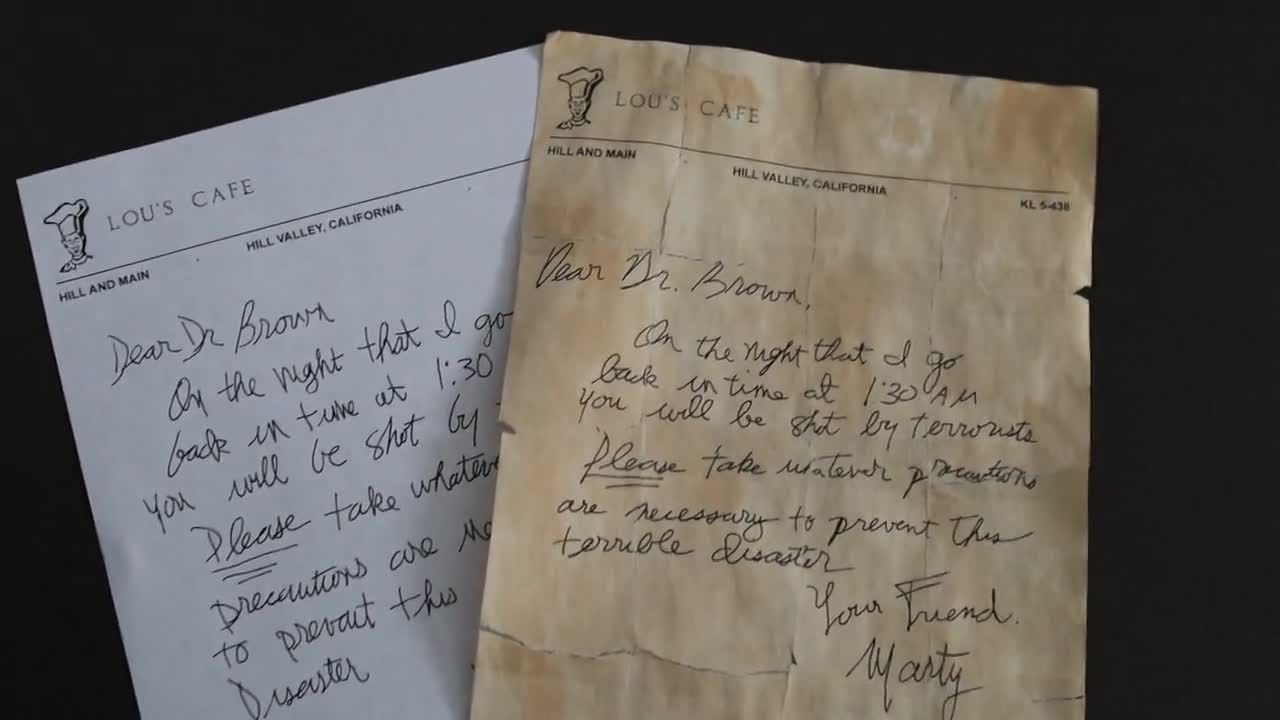 LOU'S CAFE
HILL AND MAIN
HILL VALLEY, CALIFORNIA
Dear Dr Brown
On the night that I go
back in time at 1:30
you will be shot by
Please take whateve
precautions are ne
to prevent this
Disaster
LOU'S CAFE
HILL AND MAIN
HILL VALLEY, CALIFORNIA
KL 5-438
Dear Dr. Brown,
On the night that I go
back in time at 1:30 AM
you will be shot by terrorists
Please take whatever precautions
are necessary to prevent this
terrible disaster
Your Friend.
Marty